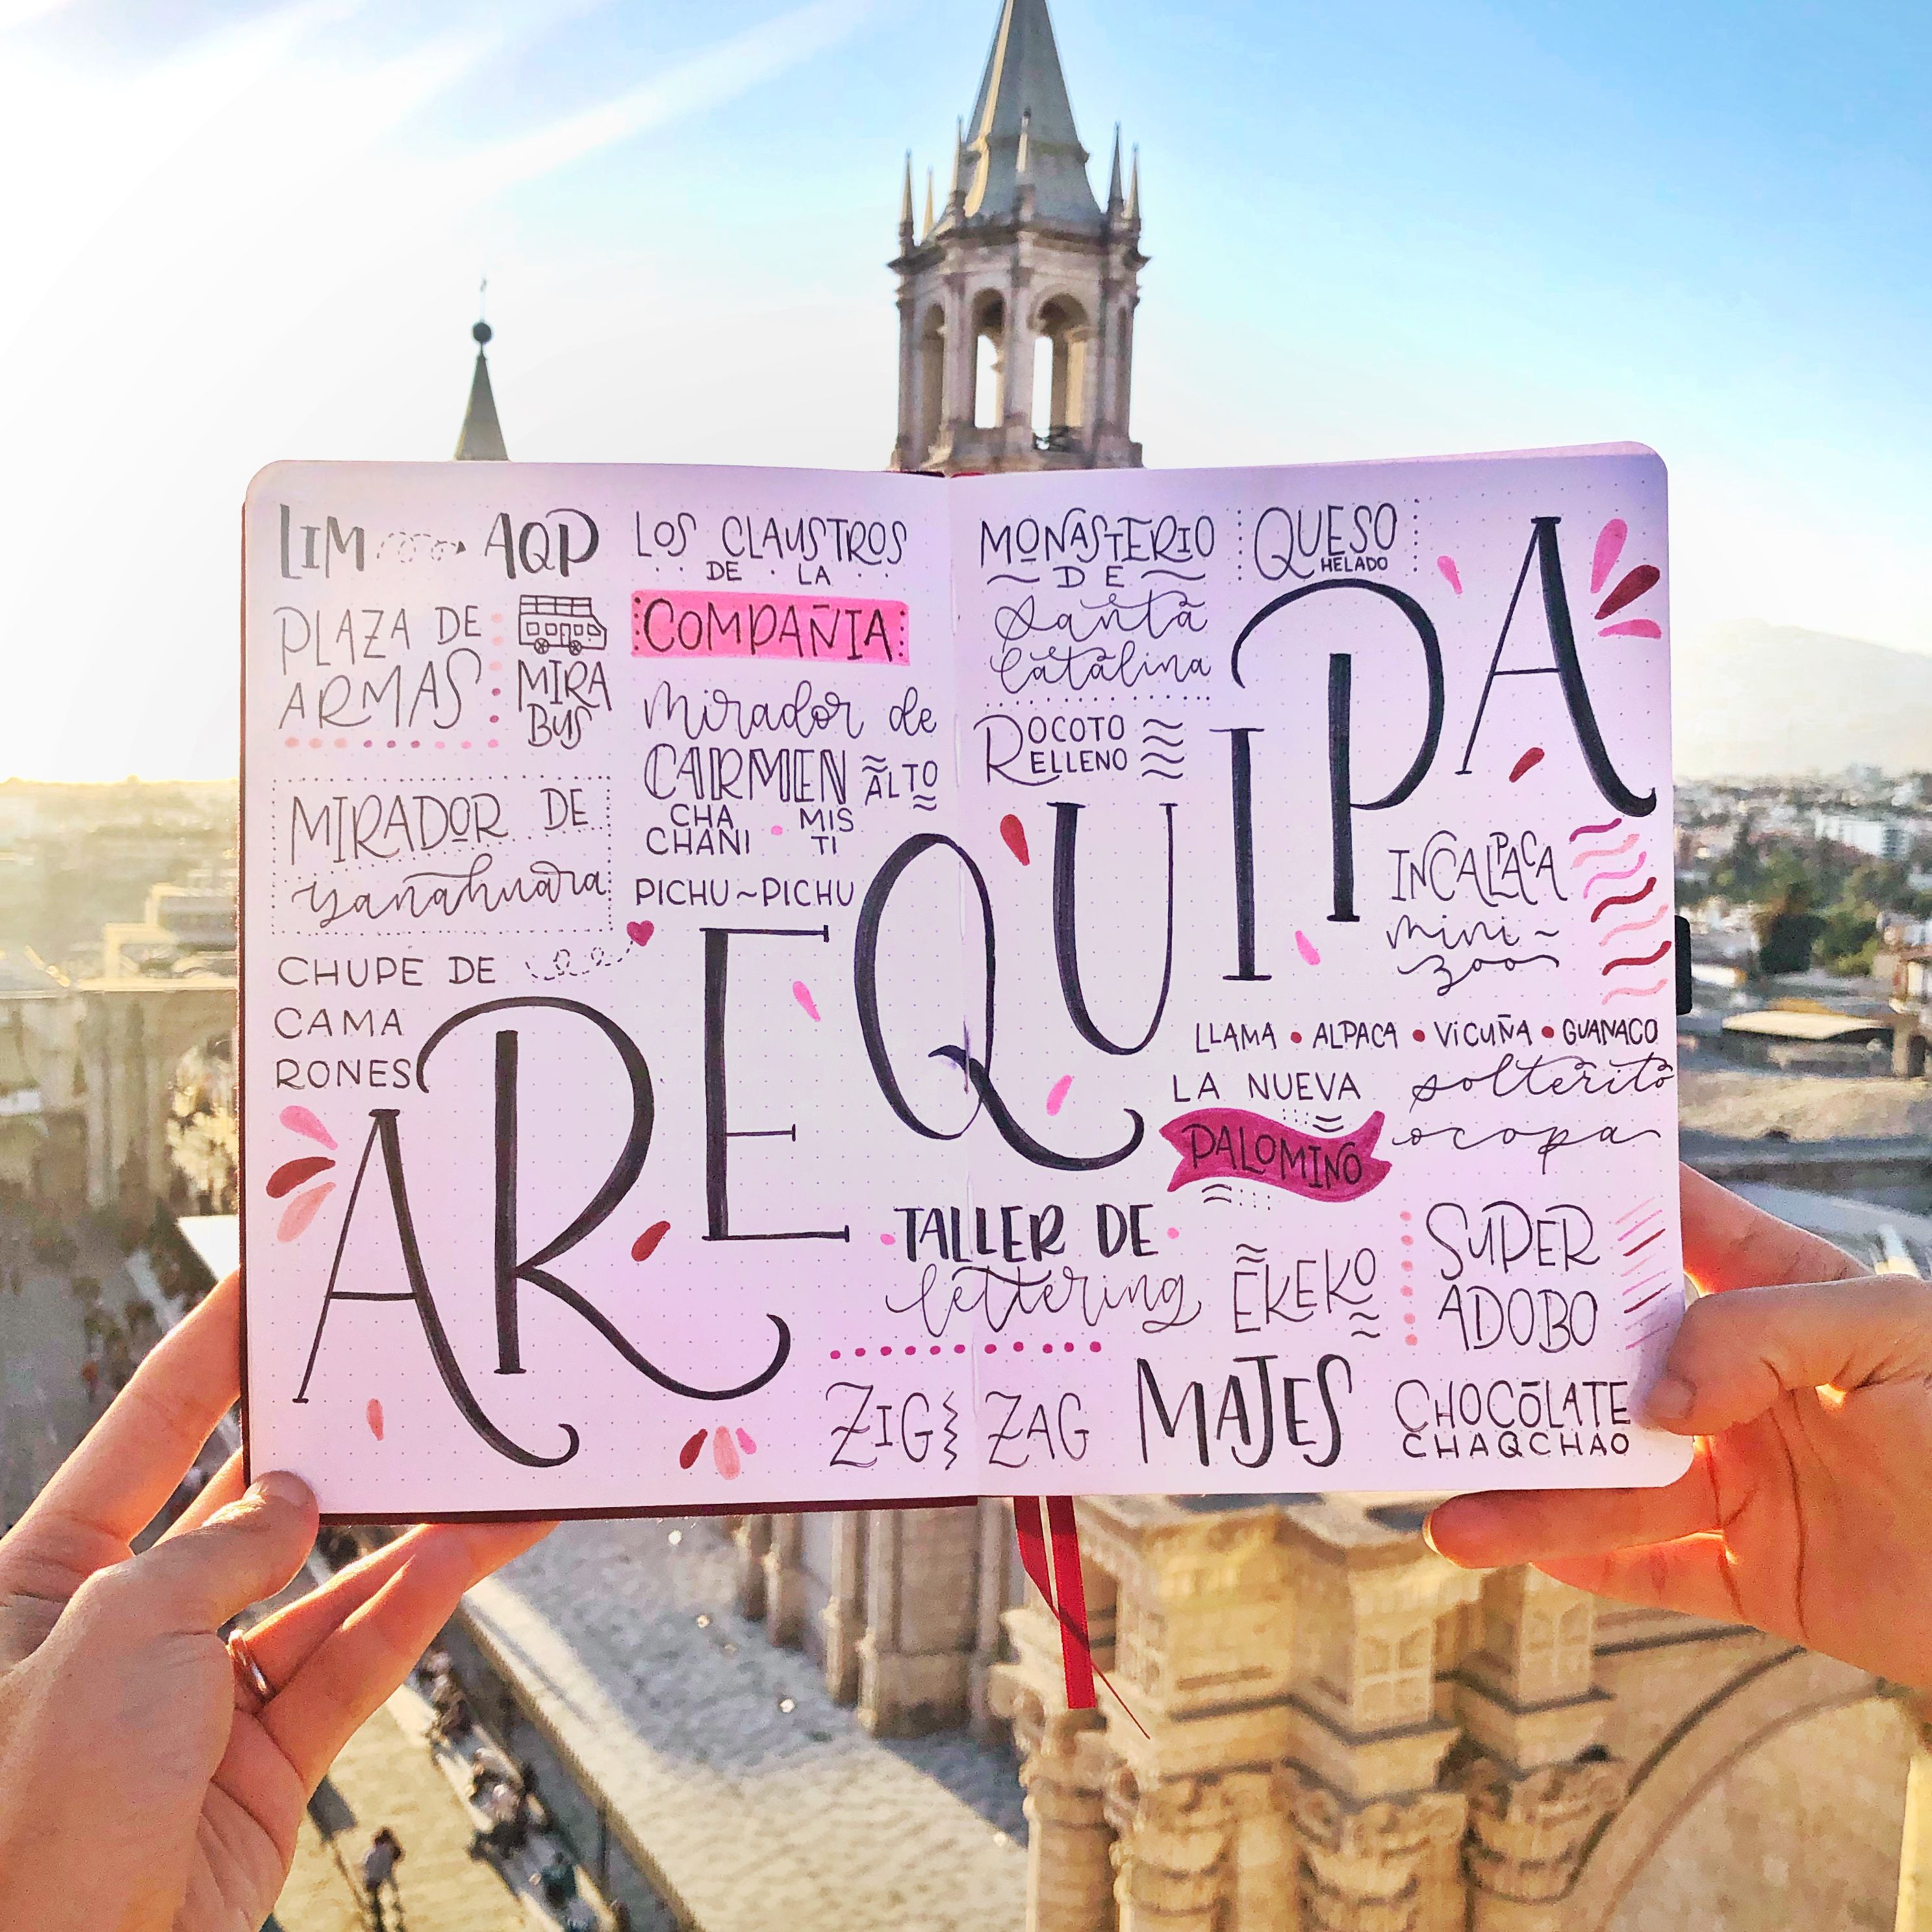 LIM AQP
PLAZA DE
ARMAS
MIRA
BUS
MIRADOR DE
yanahuara
CHUPE DE
CAMA
RONES
LOS CLAUSTROS
DE LA
COMPAÑIA
mirador de
CARMEN ALTO
CHA
CHANI
MIS
TI
PICHU~PICHU
MONASTERIO
DE
Santa
Catalina
QUESO
HELADO
ROCOTO
RELLENO
AREQUIPA
INCALPACA
mini~
zoo
LLAMA • ALPACA • VICUÑA • GUANACO
LA NUEVA
PALOMINO
solterito
ocopa
TALLER DE
lettering
EKEKO
SUPER
ADOBO
ZIG ZAG
MAJES
CHOCOLATE
CHAQCHAO